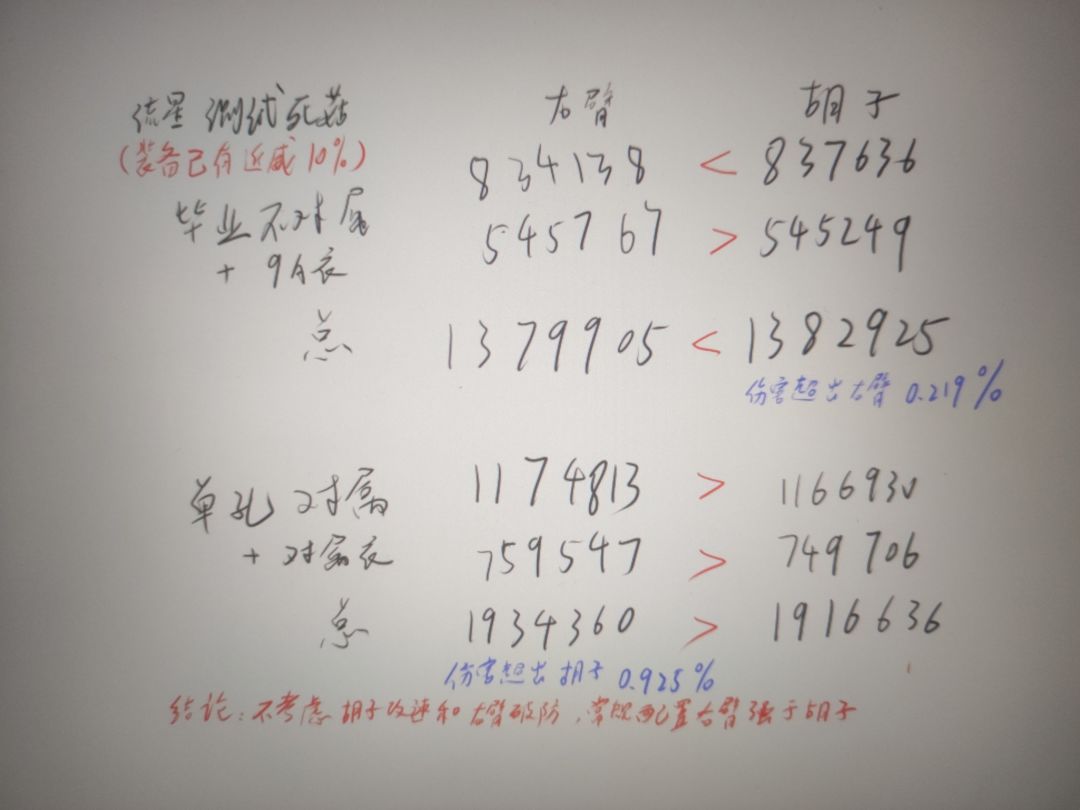 流星测试死菇 右臂 胡子
(装备已有近减10%) 834138 < 837636
毕业不对属 545767 > 545249
+ 9A衣
总 1379905 < 1382925
伤害超出右臂 0.219%
单孔对属 1174813 > 1166930
+ 对属衣 759547 > 749706
总 1934360 > 1916636
伤害超出胡子 0.925%
结论:不考虑胡子攻速和右臂破防,常规配置右臂强于胡子